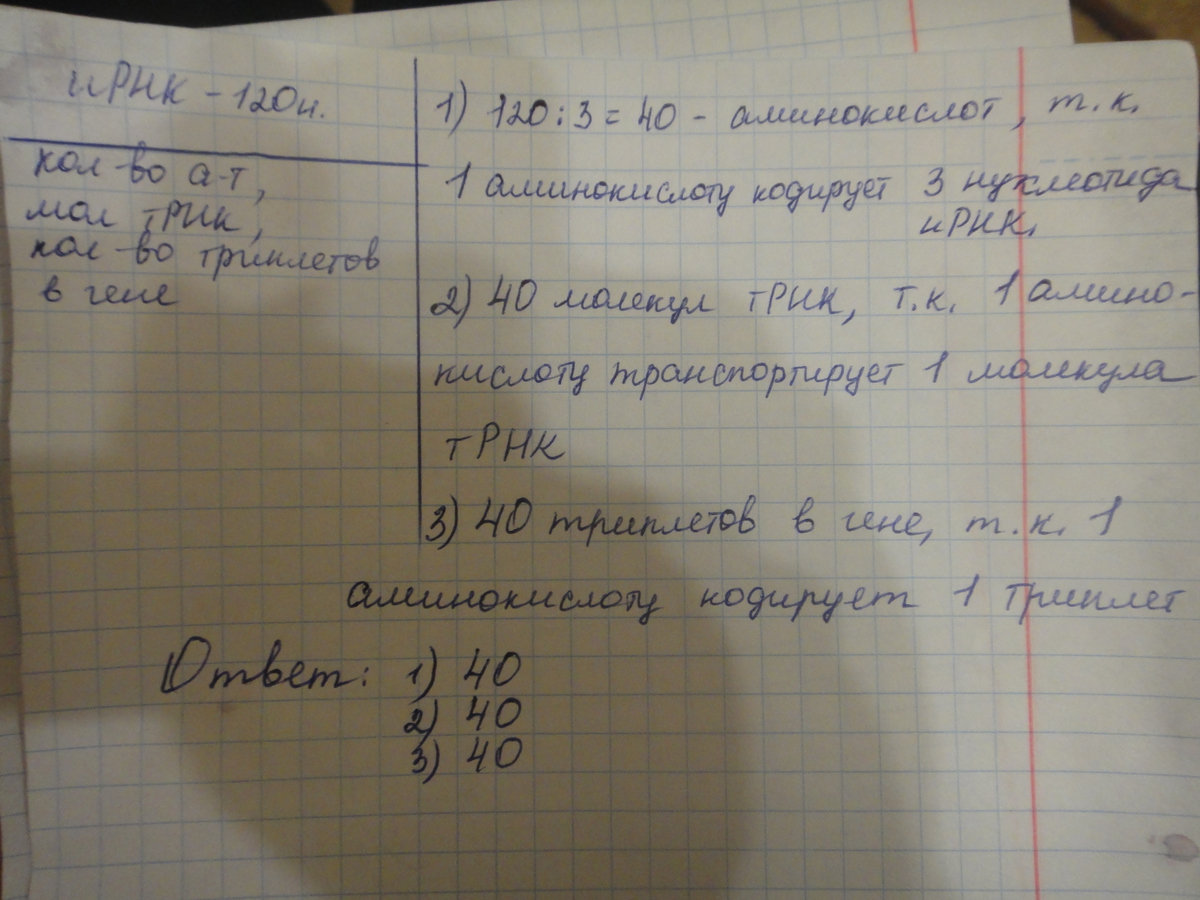 иРНК - 120н.
кол-во а-т,
мол тРНК,
кол-во триплетов
в гене
1) 120:3=40 - аминокислот, т.к.
1 аминокислоту кодирует 3 нуклеотида
иРНК.
2) 40 молекул тРНК, т.к. 1 амино-
кислоту транспортирует 1 молекула
тРНК
3) 40 триплетов в гене, т.к. 1
аминокислоту кодирует 1 триплет
Ответ: 1) 40
2) 40
3) 40